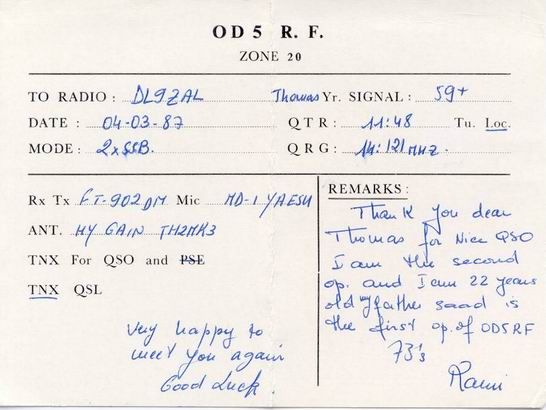 OD5 R.F.
ZONE 20
TO RADIO: DL9ZAL Thomas Yr. SIGNAL: 59+
DATE: 04-03-87 QTR: 11:48 Tu. Loc.
MODE: 2xSSB. QRG: 14:121 MHz.
Rx Tx FT-902DM Mic MD-1 YAESU
ANT. HY GAIN TH2MK3
TNX For QSO and PSE
TNX QSL
very happy to
meet you again
Good Luck
REMARKS:
Thank you dear
Thomas for Nice QSO
I am the second
op. and I am 22 years
old my father saad is
the first op. of OD5RF
73's
Rami